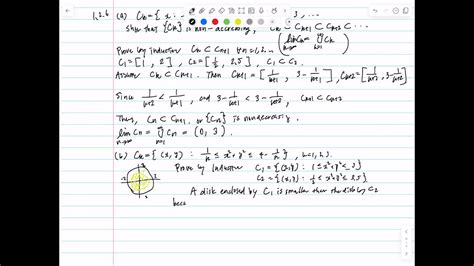 1.2.6 (a) Cₖ = { x : 3, ...
show that {Cₖ} is non-decreasing, Cₖ ⊂ Cₖ₊₁ ⊂ Cₖ₊₂ ⊂ ...
(lim Cₙ = ∪ Cₙ
n→∞ n=1
Prove by induction Cₖ ⊂ Cₖ₊₁ ∀k=1,2...
C₁ = [1, 2], C₂ = [1/2, 2.5] C₁ ⊂ C₂.
Assume Cₖ ⊂ Cₖ₊₁. Then Cₖ₊₁ = [1/(k+1), 3 - 1/(k+1)], Cₖ₊₂ = [1/(k+2), 3 - 1/(k+2)]
Since 1/(k+2) < 1/(k+1), and 3 - 1/(k+1) < 3 - 1/(k+2), Cₖ₊₁ ⊂ Cₖ₊₂
Thus, Cₖ ⊂ Cₖ₊₁ or {Cₖ} is nondecreasing.
lim Cₙ = ∪ Cₙ = (0, 3).
n→∞ n=1
(b) Cₖ = {(x,y) : 1/k ≤ x²+y² ≤ 4 - 1/k}, k=1,2,..
Prove by Induction C₁ = {(x,y) : 1 ≤ x²+y² ≤ 3}
C₂ = {(x,y) : 1/2 ≤ x²+y² ≤ 3.5}
A disk enclosed by C₁ is smaller than the disk by C₂
beca